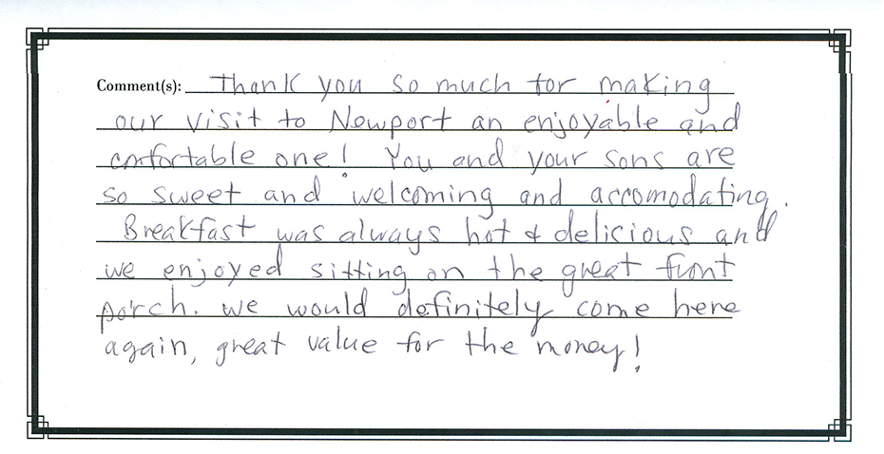 Comment(s): Thank you so much for making
our visit to Newport an enjoyable and
comfortable one! You and your sons are
so sweet and welcoming and accomodating.
Breakfast was always hot & delicious and
we enjoyed sitting on the great front
porch. We would definitely come here
again, great value for the money!